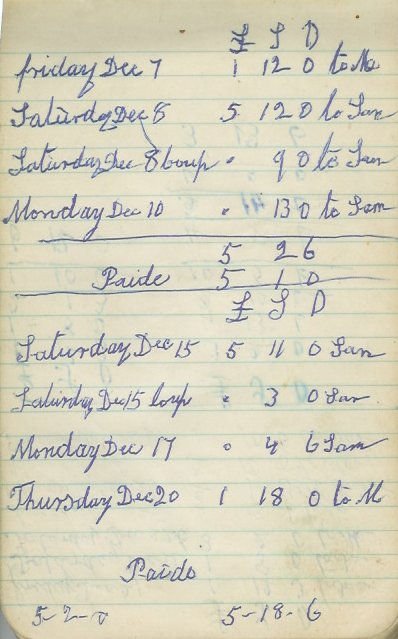 £ S D
Friday Dec 7 1 12 0 to M
Saturday Dec 8 5 12 0 to Sam
Saturday Dec 8 " 9 0 to Sam
Monday Dec 10 " 13 0 to Sam
5 2 6
Paide 5 1 0
£ S D
Saturday Dec 15 5 11 0 Sam
Saturday Dec 15 " 3 0 Sam
Monday Dec 17 " 4 6 Sam
Thursday Dec 20 1 18 0 to M
Paide
5-2-0 5-18-6